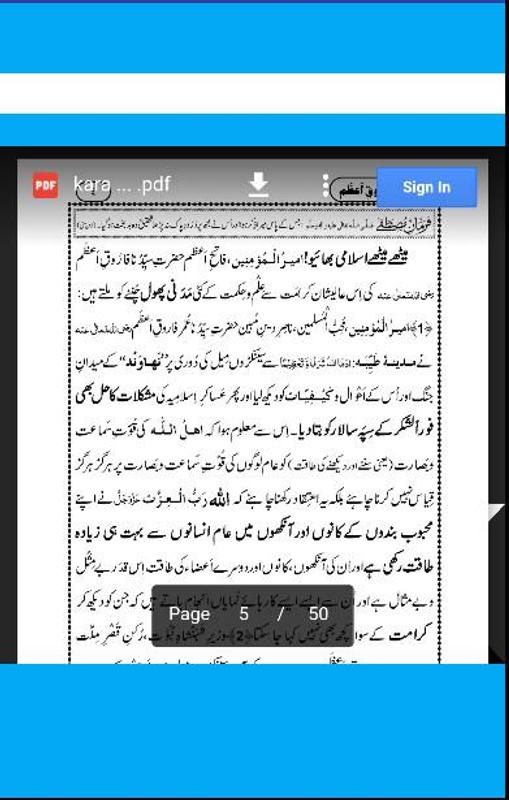 kara ... .pdf
Sign In
میٹھے میٹھے اسلامی بھائیو! امیرُ الْمُؤمِنِین، فاتحِ اعظم حضرتِ سیِّدُنا فاروقِ اعظم
رضی اللہ تعالی عنہ کی اِس عالیشان کرامت سے عِلْم و حکمت کے کئی مَدَنی پھول چُننے کو ملتے ہیں:
﴿1﴾ امیرُ الْمُؤمِنِین، مُحِبُّ الْمُسلمین، ناصرِ دینِ مُبین حضرتِ سیِّدُنا عُمر فاروقِ اعظم رضی اللہ تعالی عنہ
نے مدینۂ طیِّبہ سے سینکڑوں میل کی دُوری پر ”نَہاوَنْد“ کے میدانِ
جنگ اور اُس کے اَحْوال و کیفیات کو دیکھ لیا اور پھر عساکرِ اسلامیہ کی مشکلات کا حل بھی
فوراً لشکر کے سِپہ سالار کو بتا دیا۔ اِس سے معلوم ہوا کہ اھلُ اللّٰہ کی قُوَّتِ سَماعت
و بَصارت (یعنی سننے اور دیکھنے کی طاقت) کو عام لوگوں کی قُوَّتِ سَماعت و بَصارت پر ہرگز ہرگز
قِیاس نہیں کرنا چاہئے بلکہ یہ اعتِقاد رکھنا چاہئے کہ اللہ ربُّ الْعِزَّت عزوجل نے اپنے
محبوب بندوں کے کانوں اور آنکھوں میں عام انسانوں سے بہت ہی زیادہ
طاقت رکھی ہے اور اِن کی آنکھوں، کانوں اور دوسرے اَعضاء کی طاقت اِس قدر بے مِثْل
و بے مثال ہے اور اُن سے ایسے ایسے کارہائے نُمایاں انجام پاتے ہیں کہ جن کو دیکھ کر
کرامت کے سوا کچھ بھی نہیں کہا جا سکتا ﴿2﴾ وزیرِ شَہَنْشاہِ نُبُوَّت، رُکنِ قَصْرِ مِلّت
Page 5 / 50